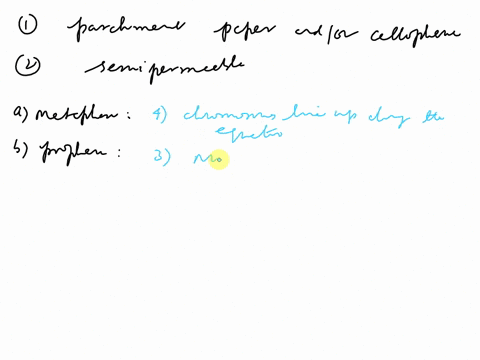 ① parchment paper and/or cellophane
② semipermeable
a) Metaphase: 4) chromosomes line up along the
equatio
b) prophase: 3) Mo